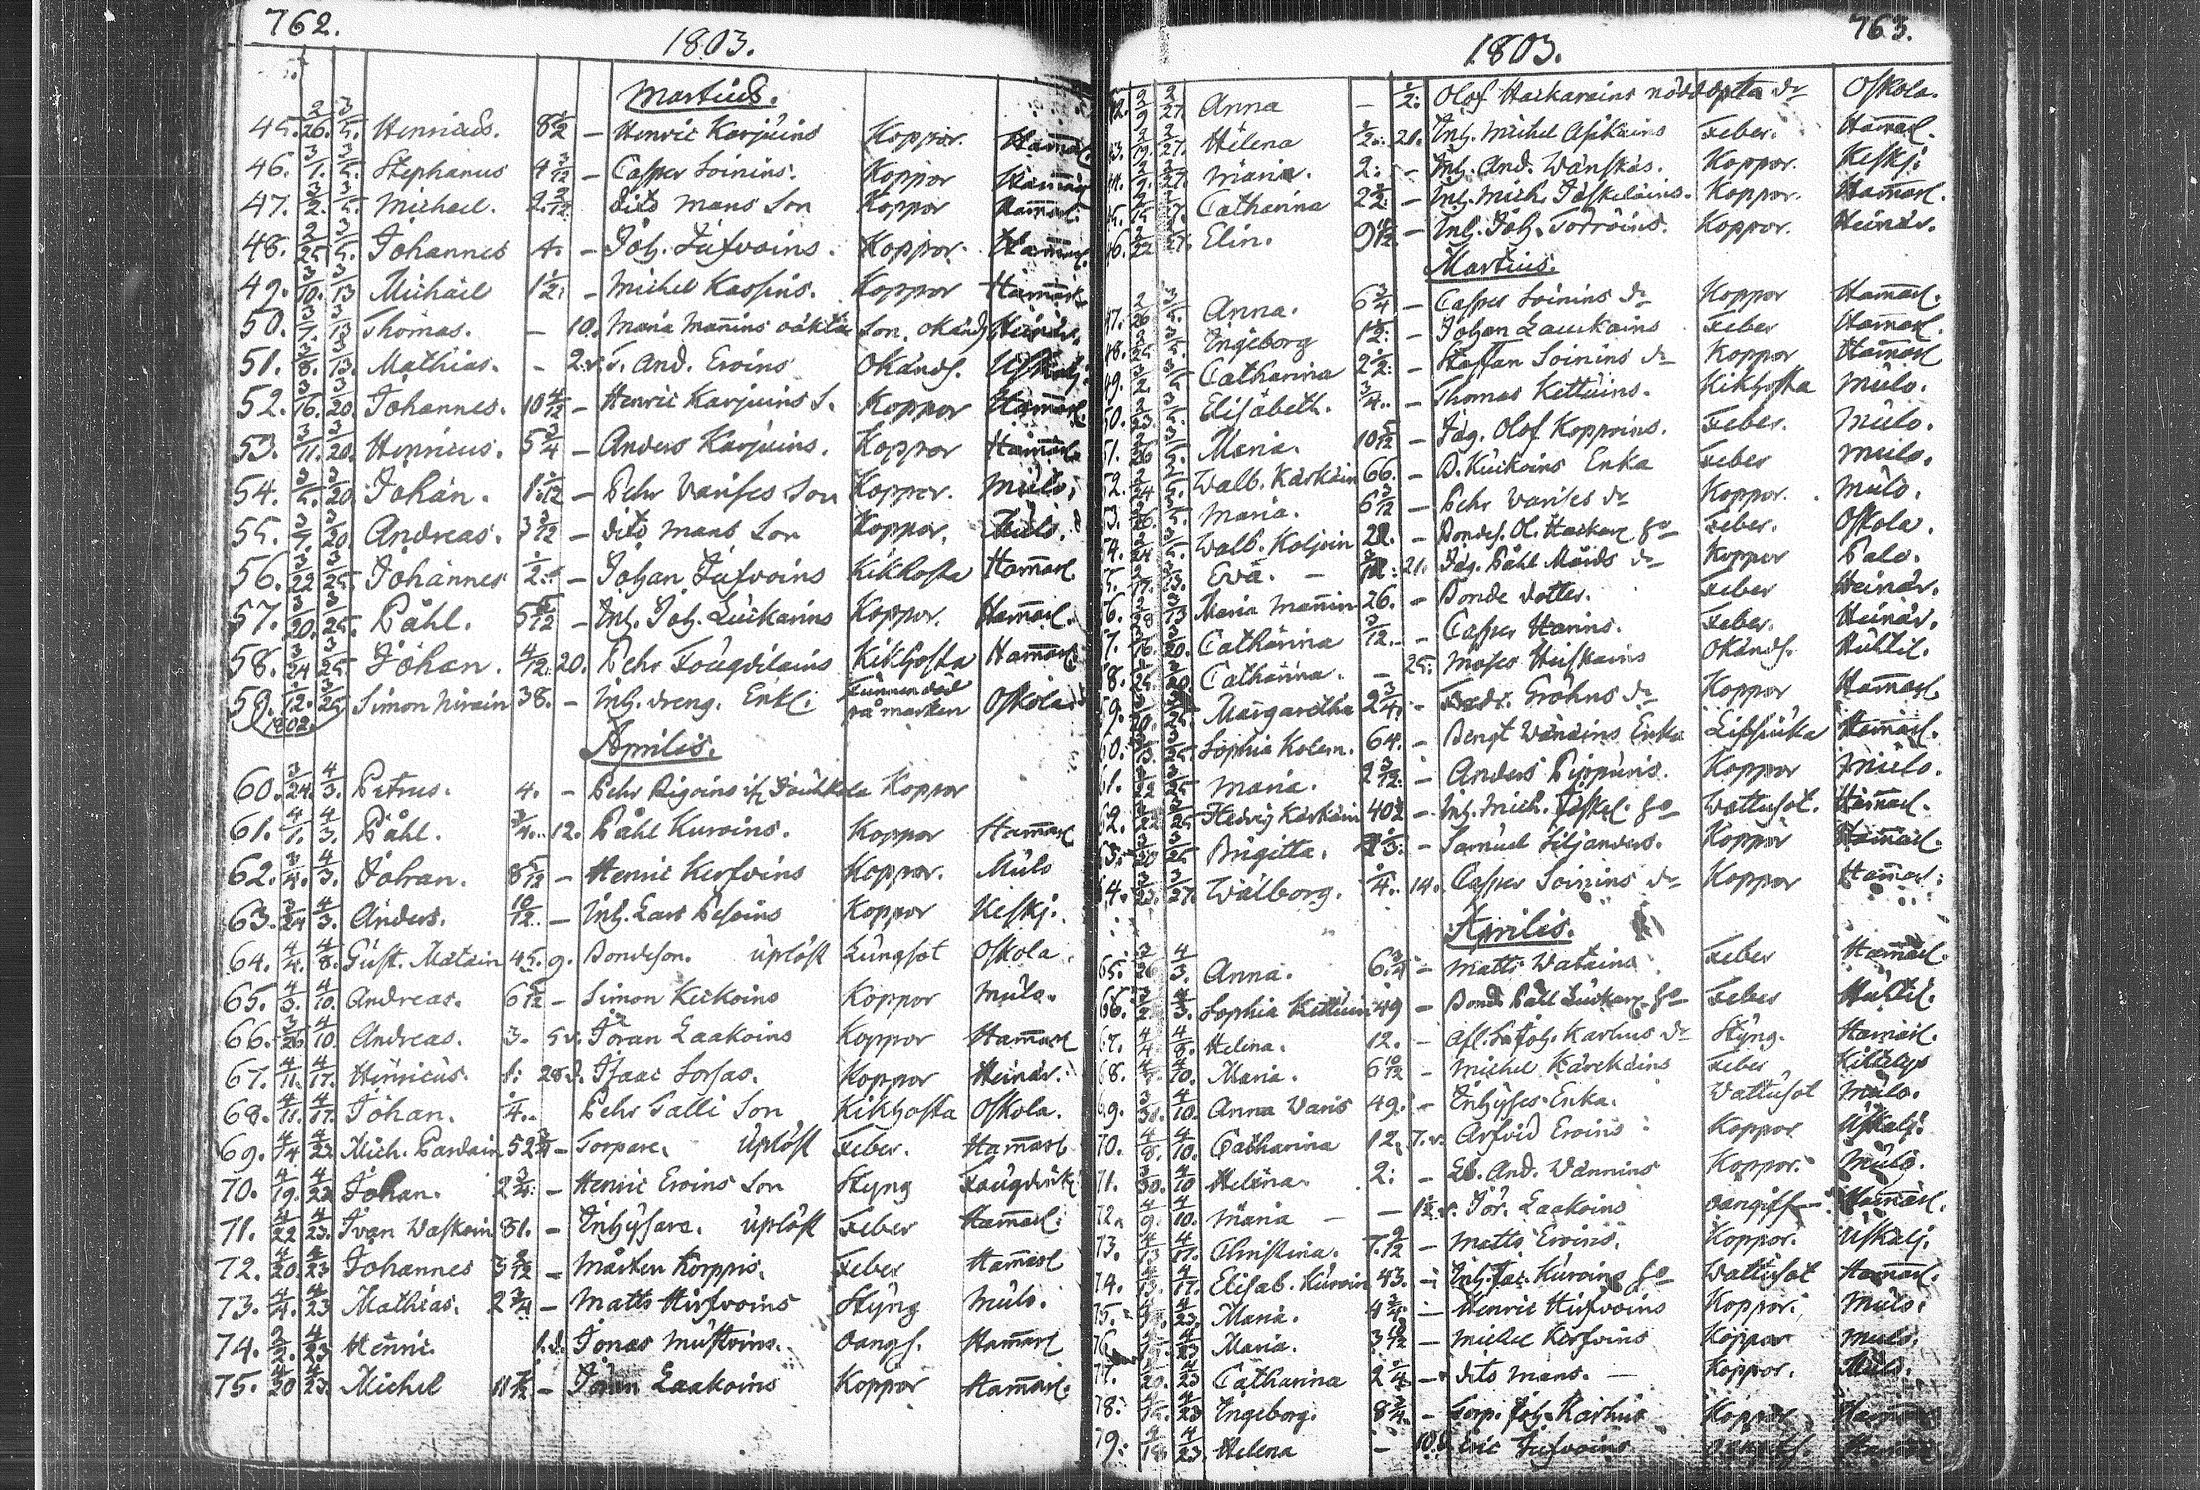 762.
1803.
Martius.
45. 2/26. 3/5. Henricus. 8 1/2 – Henric Karjuins Koppor. Hamarl.
46. 3/1. 3/5. Stephanus 4 3/12 – Casper Soinins. Koppor Hamarl
47. 3/2. 3/5. Michael. 2. dito mans Son Koppor Hamarl.
48. 2/25 3/5. Johannes 4. – Joh. Tufvoins. Koppor. Hamarl.
49. 3/10. 3/13 Michael 1 1/2. – Michel Kassins. Koppor Hamarl.
50. 3/7. 3/13 Thomas. – 10. Maria Mannins oäkta Son. okänd Heinäv.
51. 3/8. 3/13. Mathias. – 2.v. T. And. Eroins Okänds. Uskalj.
52. 3/16. 3/20. Johannes. 10 4/12 – Henric Karjuins S. Koppor Hamarl.
53. 3/11. 3/20. Henricus. 5 3/4 – Anders Karjuins. Koppor Hamarl.
54. 3/5. 3/20. Johan. 1. – Pehr Varises Son Koppor. Mulo.
55. 3/7. 3/20. Andreas. 3 3/12 – dito mans Son Koppor. Mulo.
56. 3/22 3/25. Johannes 1/2. – Johan Tufvoins Kikhosta Hamarl
57. 3/20. 3/25. Påhl. 5 – Inh. Joh. Luckarins Koppor. Hamarl.
58. 3/24 3/25 Johan. 4/12. 20. Pehr Fougdilains Kikhosta Hamarl.
59. 12. 3/25. Simon Hirvin 38. – Inh. dreng. Enkl. funnen död på marken Oskola
1802.
Aprilis.
60. 3/24. 4/3. Petrus. 4. – Pehr Koppor
61. 4/1. 4/3. Påhl. 3/4. 12. Påhl Kuroins. Koppor Hamarl
62. 3/4. 4/3. Johan. 8 5/12 – Henric Kerfvins Koppor. Mulo
63. 3/24 4/3. Anders. 10/12. – Inh. Lars Pesoins Koppor Keskj.
64. 4/4. 4/8. Gust. Matain 45. 9. Bondeson. uplöst Lungsot Oskola.
65. 4/3. 4/10. Andreas. 6 – Simon Keckoins Koppor Mulo.
66. 3/26. 4/10. Andreas. 3. 5v. Jöran Laakoins Koppor Hamarl
67. 4/11. 4/17. Henricus. 1. 28.d. Isaac Sorsas. Koppor Heinäv.
68. 4/11. 4/17. Johan. 1/4. Pehr Galli Son Kikhosta Oskola.
69. 4/14 4/22 Mich. Pardain 52 3/4 – Torpare. Uplöst Feber. Hamarl
70. 4/19. 4/22 Johan. 2 3/4. – Henric Eroins Son Styng Fougdik.
71. 4/22 4/23. Ivan Waskain 81. – Inhysare. Uplöst Feber Hamarl.
72. 4/20. 4/23 Johannes 3 – Mårten Korppis. Feber Hamarl
73. 4/4. 4/23 Mathias. 2 3/4 – Matts Hirfvoins Styng Mulo.
74. 4/23 Henric. 1.d. Jonas Mustoins. Oangf. Hamarl
75. 4/20 4/23. Michel 11 – Jöran Laakoins Koppor Hamarl.
763.
1803.
42. 2/9 2/27. Anna – 1/2. Olof Hackarains nöddöpta dr Oskola.
43. 2/19. 2/27. Helena 21. Inh. Michel Asikains Feber. Hamarl.
44. 2/27. Maria. 2. – Inh. And. Wänskäs. Koppor. Keskj.
45. Catharina 2 1/2. – Inh. Mich. Jäskeläins. Koppor. Hamarl.
46. Elin. 9 – Inh. Joh. Torroins. Koppor. Heinäv.
Martius.
47. 2/26 3/5. Anna. 6 3/4 – Casper Soinins dr Koppor Hamarl.
48. 2/25 3/5. Ingeborg 1 1/2. – Johan Lauckains Feber Hamarl.
49. 3/2. 3/5. Catharina 2 1/2. – Staffan Soinins dr Koppor Hamarl
50. 2/23. 3/5. Elisabeth. 3/4. – Thomas Kettuins. Kikhosta Mulo.
51. 2/26 3/5. Maria. 10 – Jäg. Olof Koppoins. Feber. Mulo.
52. 2/24 3/5. Walb. Kärkäin 66. – B. Kuckoins Enka Feber Mulo.
53. 2/26 3/5. Maria. 6 3/12 – Pehr Varises dr Koppor. Mulo.
54. 2/24 3/5. Walb. Koljoin 22. – Bondes. Ol. Hackar hu Feber. Oskola.
55. 2/17. 3/13. Eva. – 21. Jäg. Påhl Moids dr Koppor Palo.
56. 2/28 3/13 Maria Mannin 26. – Bonde dotter. Feber Heinäv.
57. 3/16. 3/20. Catharina 3/12. – Casper Harins. Feber. Heinäv.
58. 3/20. Catharina. – 25. Moses Huskains Okänds. Huhtil.
59. 3/25. Margaretha 2 3/4. – Fredr. Gröhns dr Koppor Hamarl.
60. 3/13. 3/25. Sophia Kolem. 64. – Bengt Wänäins Enka Lifssiuka Hamarl.
61. 3/22 3/25 Maria. 2 3/12. – Anders Pippuris. Koppor Mulo.
62. 3/22 3/25 Hedvig Kärkäin 40 – Inh. Mich. Jäskel. hu Wattusot. Hamarl.
63. 3/20 3/25 Brigitta. – Samuel Siljanders. Koppor Hamarl.
64. 3/23. 3/27. Walborg. 1/4. 14. Casper Soinins dr Koppor Hamarl.
Aprilis.
65. 3/26 4/3. Anna. 6. – Matts Watains Feber Hamarl.
66. 4/3. Sophia Kettuin 49 – Bond. Påhl Luckar hu Feber Huhtil.
67. 4/4 4/8. Helena. 12. – Afl. Joh. Karhus dr Styng. Hamarl.
68. 4/10. Maria. 6 10/12 – Michel Kärckäins Feber
69. 3/31. 4/10. Anna Varis 49. – Inhyses Enka. Wattusot Mulo.
70. 4/8. 4/10. Catharina 12. 7.v. Arfvid Eroins Koppor Uskalj.
71. 3/30. 4/10 Helena. 2. – And. Wännins Koppor. Mulo.
72. 4/9. 4/10. Maria – – Jör. Laakoins oangiff – Hamarl.
73. 4/13 4/17. Christina. 7. – Matts Eroins. Koppor. Uskalj.
74. 4/13. 4/17. Elisab. Kuroin 43. – Inh. Kuroins hu Wattusot Hamarl.
75. 4/23. Maria. 4 3/4. – Henric Hirfvoins Koppor. Mulo.
76. 4/23 Maria. 3 10/12 – Michel Kerfvins Koppor Mulo.
77. 4/20. 4/23 Catharina 2 – dito mans. – Koppor. Mulo.
78. 4/23 Ingeborg. 8 3/4. – Torp. Joh. Karhus Koppor. Hamarl
79. 4/23. Helena – 10.d. Eric Tufvoins